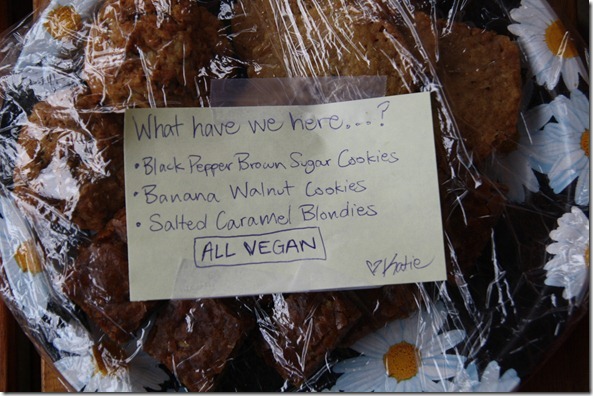 What have we here....?
• Black Pepper Brown Sugar Cookies
• Banana Walnut Cookies
• Salted Caramel Blondies
ALL VEGAN
♡Katie